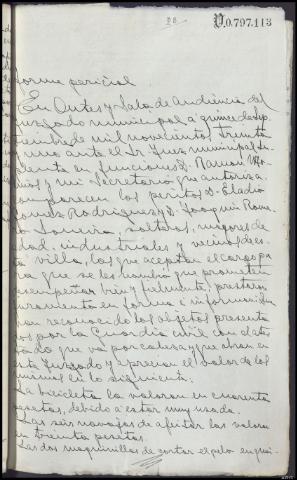 V.0.797.113
forme pericial
En Antes y Sala de Audiencia del
Juzgado municipal a quince de Sep
tiembre de mil novecientos treinta
y uno ante el Sr Juez municipal Su
plente en funciones D. Ramon
y mi Secretario que autoriza
comparecen los peritos D. Eladio
Gomez Rodriguez y D. Joaquin Rome
ro Loureiro, solteros, mayores de
edad, industriales y vecinos de es
ta villa, los que aceptan el cargo pa
ra que se les nombró que prometen
desempeñar bien y fielmente, prestaron
juramento en forma e informan
han reconocido los objetos presenta
dos por la Guardia civil con
tado que va por cabeza y que obran en
este Juzgado y aprecian el valor de los
mismos en lo siguiente:
La bicicleta la valoran en cuarenta
pesetas, debido a estar muy usada.
Las seis navajas de afeitar las valoran
en treinta pesetas.
Las dos maquinillas de cortar el pelo en